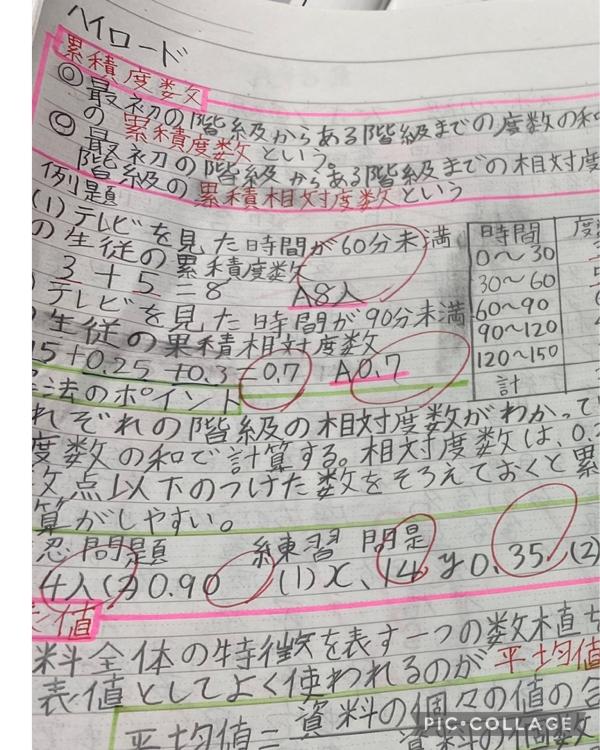 ハイロード
累積度数
◎最初の階級からある階級までの度数の和
の累積度数という。
◎最初の階級からある階級までの相対度
階級の累積相対度数という
例題
(1)テレビを見た時間が60分未満
の生徒の累積度数
3+5=8 A8人
テレビを見た時間が90分未満
生徒の累積相対度数
15+0.25+0.3=0.7 A0.7
時間 度
0〜30
30〜60
60〜90
90〜120
120〜150
計
法のポイント
れぞれの階級の相対度数がわかって
度数の和で計算する。相対度数は、0.
点以下のつけた数をそろえておくと累
算がしやすい。
問題 練習問題
4人(2)0.90 (1)x、14 y0.35 (2)
値
料全体の特徴を表す一つの数値
表値としてよく使われるのが平均値
平均値=資料の個々の値の合
資料の個数
PIC•COLLAGE